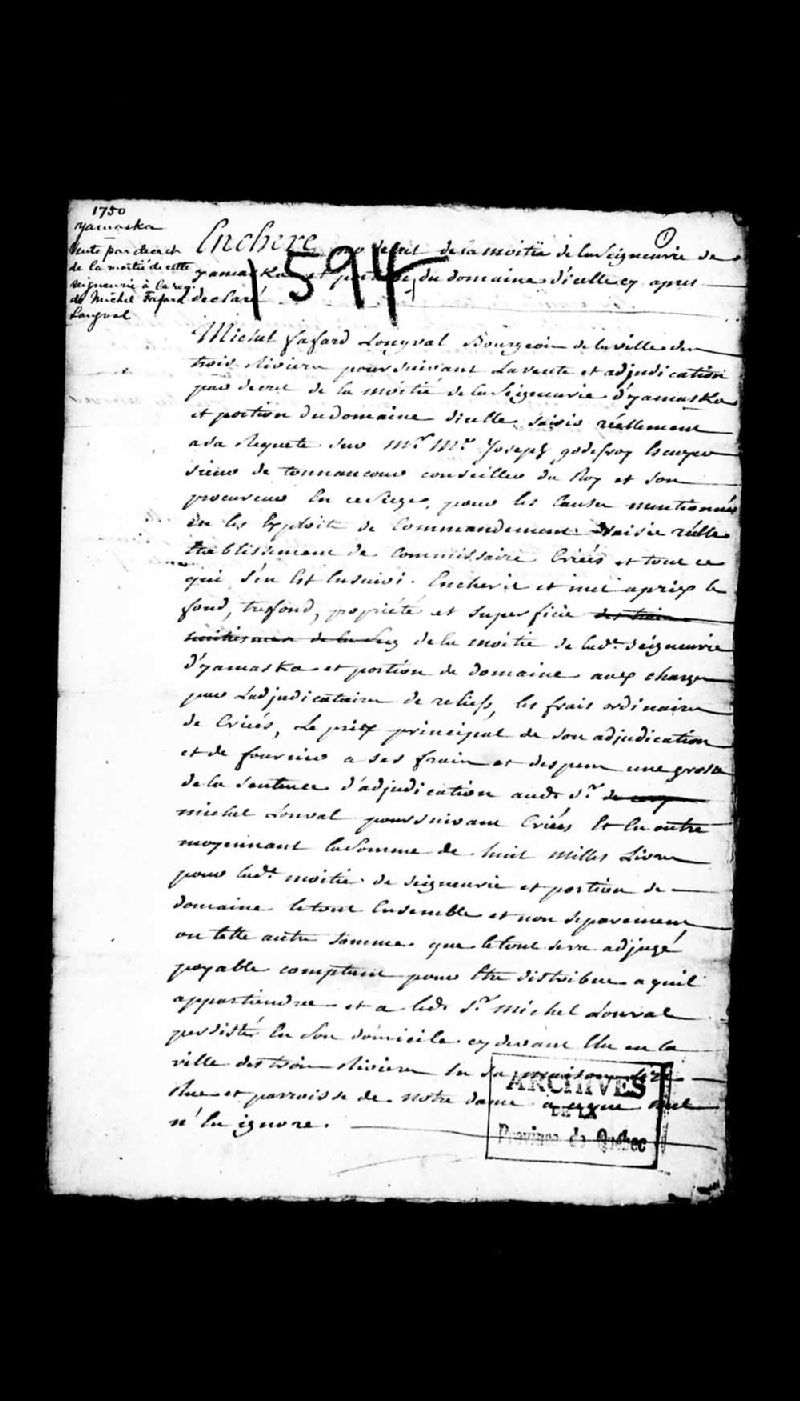 1750
yamaska
Vente par decret
de la moitié de cette
seigneurie à la req
de Michel Fafard
Longval
1
Enchere decret de la moitié de la Seigneurie de
yamaska et portion du domaine d'icelle cy apres
declaré
1594
Michel fafard Longval Bourgeois de la ville des
trois Rivieres poursuivant La vente et adjudication
par decret de la moitié de la Seigneurie d'yamaska
et portion du domaine d'icelle, saisis réellement
a sa Requete sur Mr. Mr. Joseph godefroy Ecuyer
sieur de tonnancour conseiller du Roy et son
procureur En ce siege, pour les Causes mentionnés
En les Exploits de Commandement saisie réelle
Etablissement de Commissaire Criées et tout ce
qui s'en Est Ensuivi. Encherie et met a prix le
fond, trefond, propriété et superficie des
de la Seig de la moitié de lad.e Seigneurie
d'yamaska et portion de domaine aux charges
pour L'adjudicataire de reliefs, les frais ordinaires
de Criées, Le prix principal de son adjudication
et de fournir a ses frais et despens une grosse
de la Sentence d'adjudication aud. Sr. de
michel Lonval poursuivant Criées Et En outre
moyennant la Somme de huit milles Livres
pour lad.e moitié de seigneurie et portion de
domaine le tout Ensemble et non separement
ou telle autre Somme que le tout sera adjugé
payable comptant pour Etre distribue a quil
appartiendra et a led. Sr. Michel Lonval
persisté En son domicile cy devant Elu en la
ville des trois Rivieres En sa maison size
Rue et parroisse de notre dame a ce que nul
n'En ignore.
ARCHIVES
DE LA
Province de Québec